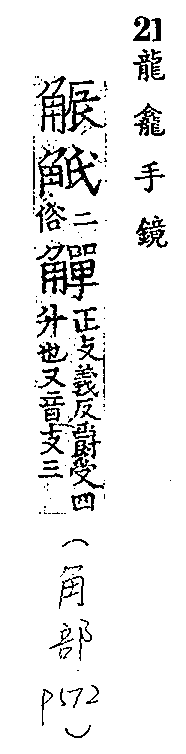 21 龍龕手鏡
觗
二
俗
觶
正支義反爵受四
升也又音支三
(角部
p572)